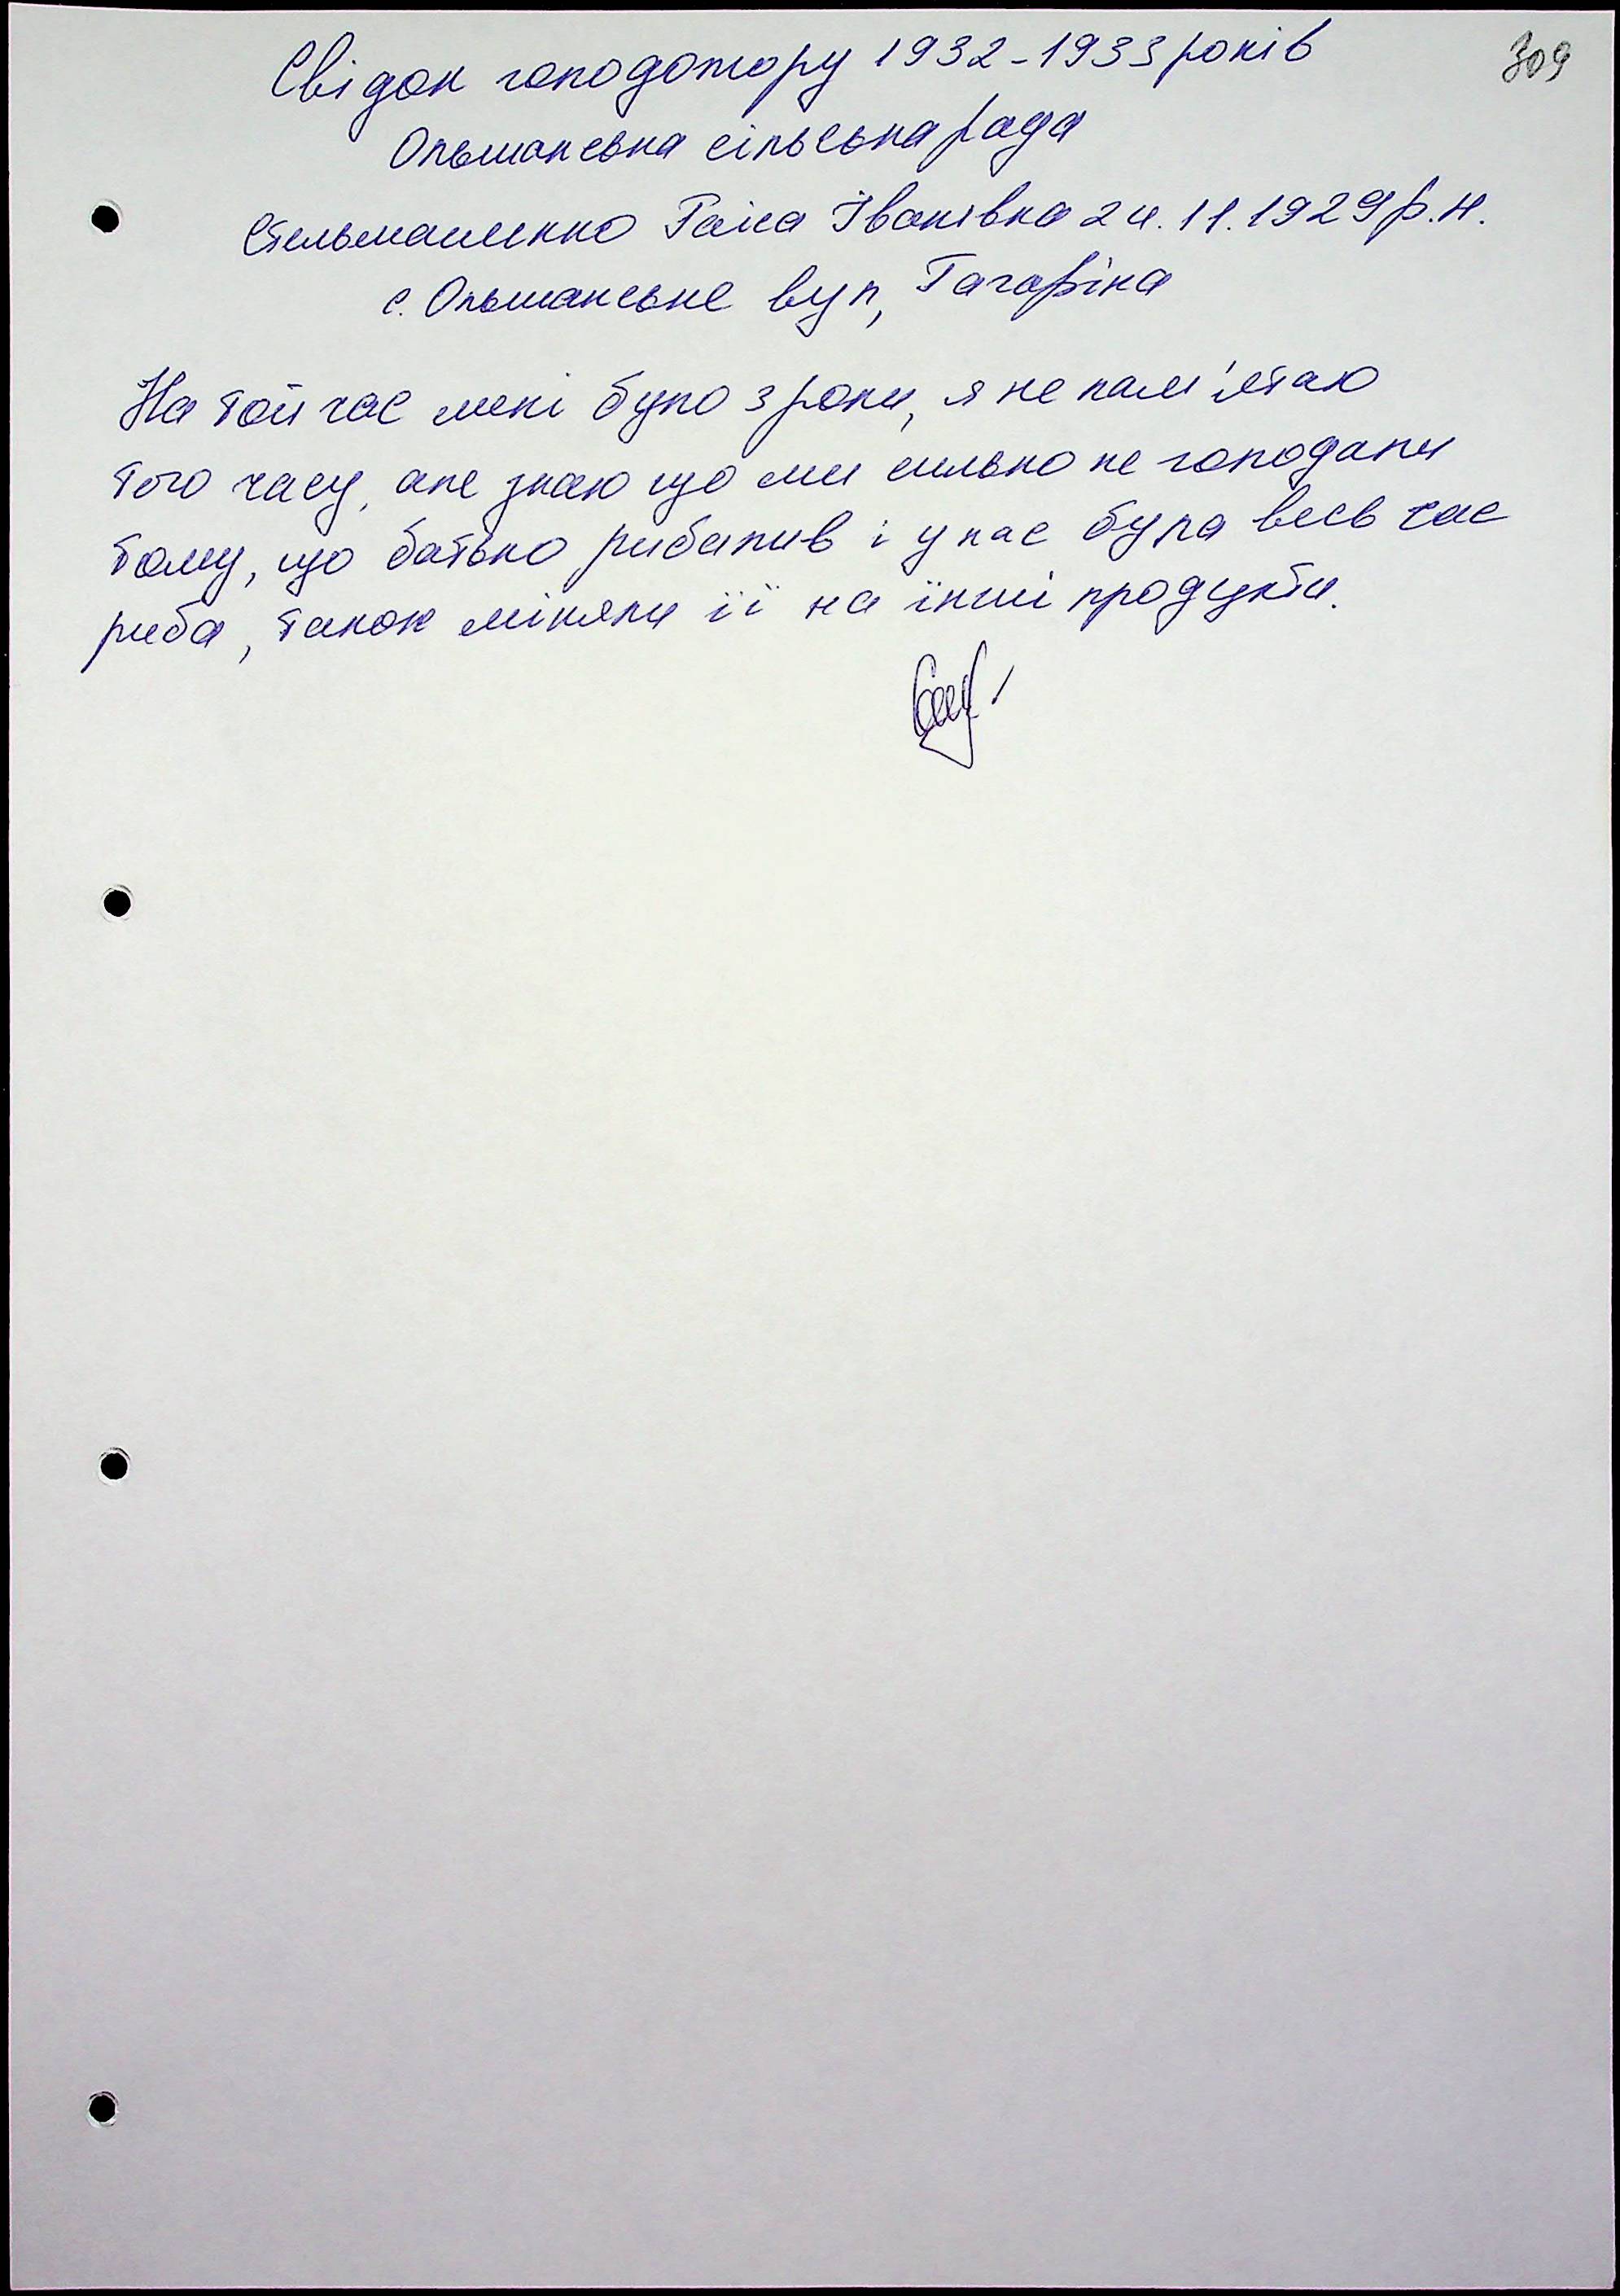 309
Свідок голодомору 1932-1933 років
Ольшанська сільська рада
Стельмашенко Раїса Іванівна 24.11.1929 р.н.
с. Ольшанське вул, Гагаріна
На той час мені було 3 роки, я не пам'ятаю
того часу, але знаю що ми сильно не голодали
тому, що батько рибалив і у нас була весь час
риба, також міняли її на їнші продукти.